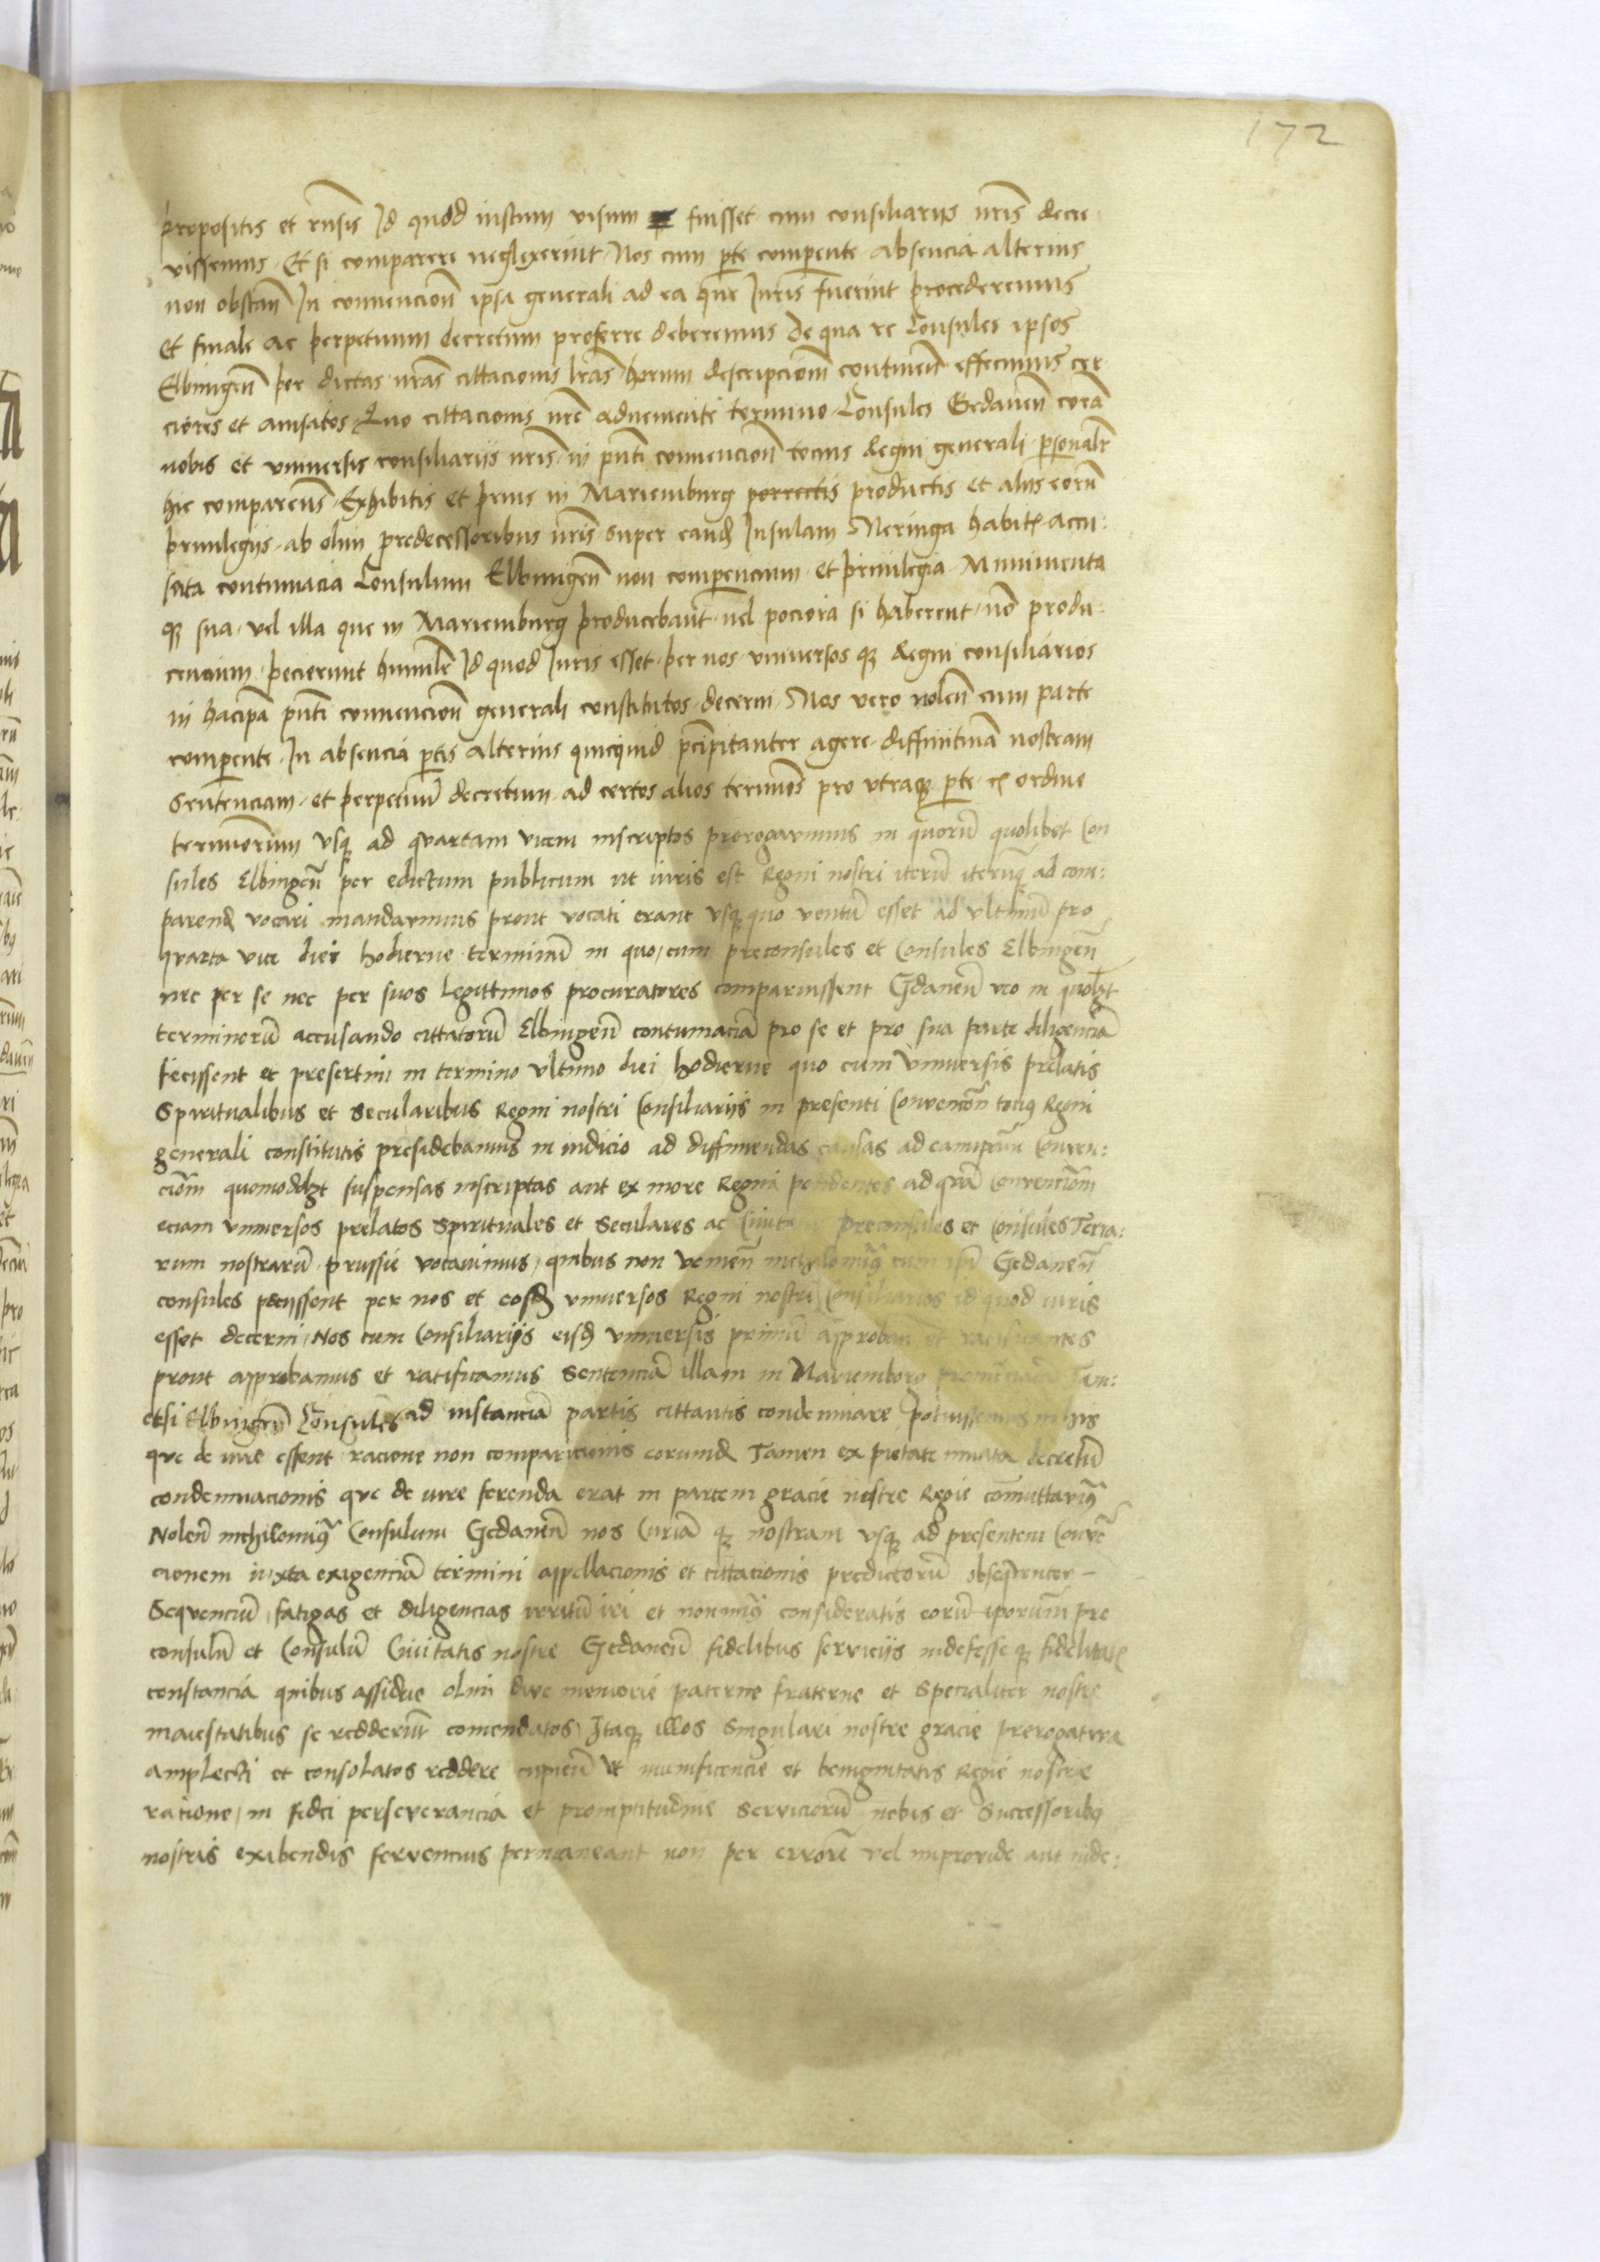 172
propositis et rnsis Id quod iustum visum fuisset cum consiliariis nris decre
vissemus. Et si comparere neglexerint. Nos cum pte compente absencia alterius
non obstan In convencion ipsa generali ad ea que Iuris fuerint procederemus
Et finale ac perpetuum decretum proferre deberemus De qua re Consules ipsos
Elbingen per dictas nras cittacionis lras horum descripcionem continen effecimus cer
ciores et avisatos Quo cittacionis nre adveniente termino Consules Gedanen coram
nobis et universis consiliariis nris in pnti convencion tocius Regni generali psonalr
hic comparens Exhibitis et prius in Mariemburg porrectis productis et aliis eorum
privilegiis ab olim predecessoribus nris super eand Insulam Neringa habit accu:
sata contumacia Consulum Elbingen non compencium et privilegia Munimenta
q sua vel illa que in Mariemburg producebant vel pociora si haberent no produ:
cencium pecierunt humilr Id quod Iuris esset per nos universos q Regni consiliarios
in hac ipsa pnti convencion generali constitutos decerni. Nos vero nolen cum parte
compente In absencia ptis alterius quicquid pcipitanter agere diffinitivam nostram
Sentenciam et perpetuum decretum ad certos alios terminos pro utraq pte ex ordine
terminorum usq ad quartam vicem inscriptos prorogavimus in quorum quolibet Con
sules Elbingen per edictum publicum ut iuris est Regni nostri iterum iterumq ad com:
parend vocari mandavimus prout vocati erant usq quo ventum esset ad ultimum pro
quarta vice diei hodierne terminum in quo cum preconsules et Consules Elbingen
nec per se nec per suos legittimos procuratores comparuissent Gdanen vero in quolibet
terminorum accusando cittatorum Elbingen contumaciam pro se et pro sua parte diligenciam
fecissent et presertim in termino ultimo diei hodierne quo cum Universis prelatis
Spiritualibus et Secularibus Regni nostri Consiliariis in presenti Convencion tocius Regni
generali constitutis presidebamus in iudicio ad diffiniendas causas ad eam Conven:
ciom quomodolibet suspensas inscriptas aut ex more Regni pendentes ad qua Convencionem
eciam universos prelatos Spirituales et Seculares ac preconsules et Consules Terra:
rum nostrarum prussie vocavimus, quibus non venien nichilominus cum ipsi Gedanen
consules peciissent per nos et eosd universos Regni nostri Consiliarios id quod iuris
esset decerni, Nos cum Consiliariis eisd universis primum approban et ratificantes
prout approbamus et ratificamus Sentenciam illam in Mariemborg Tam:
etsi Elbingen Consules ad instanciam partis cittantis condemnare potuissemus in his
que de iure essent racione non comparicionis eorumd Tamen ex pietate innata decretum
condemnacionis que de iure ferenda erat in partem gracie nostre Regie comuttavimus
Nolen nichilominus Consulum Gedanen nos Curiam q nostram usq ad presentem Conven
cionem iuxta exigenciam termini appellacionis et cittacionis predictorum obsequenter
Sequencium, fatigas et diligencias irritum iri et nonminus consideratis eorum iporum pre
consulum et Consulum Civitatis nostre Gedanen fidelibus serviciis indefesse q fidelitatis
constancia quibus assidue olim dive memorie paterne fraterne et Specialiter nostre
maiestatibus se reddiderunt comendatos, Itaq illos Singulari nostre gracie prerogativa
amplecti et consolatos reddere cupien ut munificencie et benignitatis Regie nostre
ratione, in fidei perseverancia et promptitudine Serviciorum nobis et Successoribus
nostris exibendis ferventius permaneant non per errorem vel improvide aut inde: